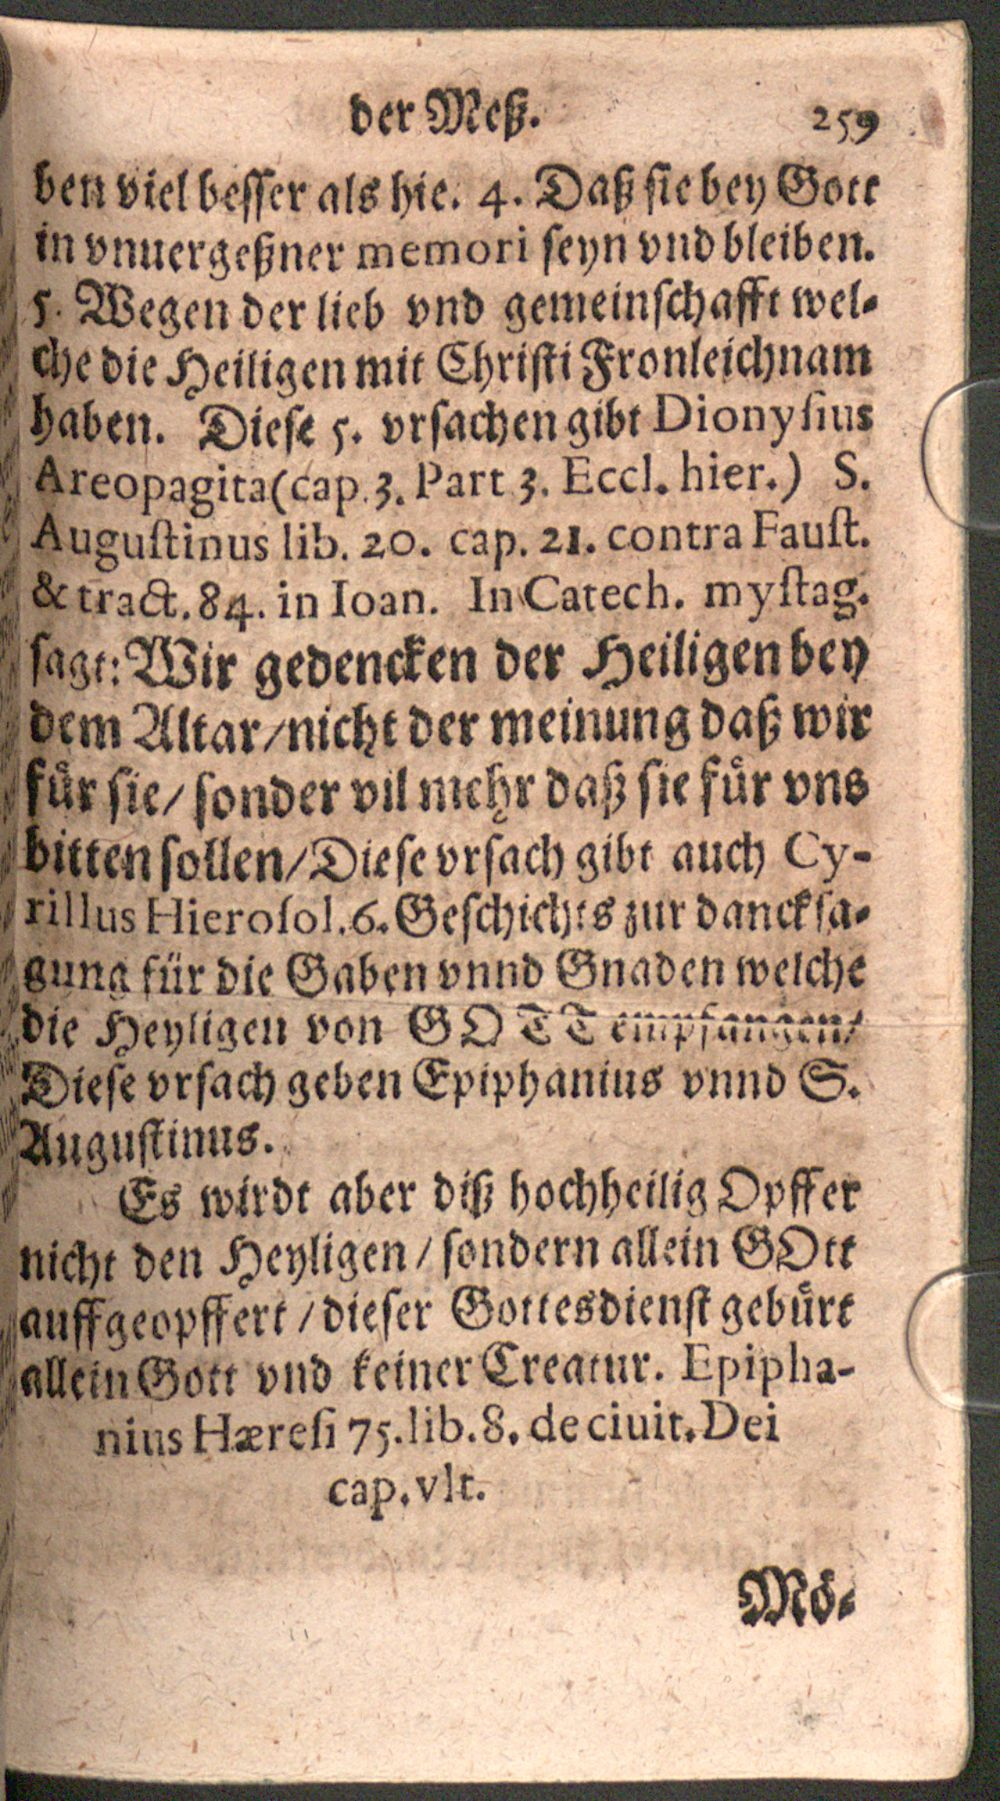 der Meß. 259
ben viel besser als hie. 4. Daß sie bey Gott
in vnuergeßner memori seyn vnd bleiben.
5. Wegen der lieb vnd gemeinschafft wel-
che die Heiligen mit Christi Fronleichnam
haben. Diese 5. vrsachen gibt Dionysius
Areopagita (cap. 3. Part 3. Eccl. hier.) S.
Augustinus lib. 20. cap. 21. contra Faust.
& tract. 84. in Ioan. In Catech. mystag.
sagt: Wir gedencken der Heiligen bey
dem Altar/ nicht der meinung daß wir
für sie/ sonder vil mehr daß sie für vns
bitten sollen/ Diese vrsach gibt auch Cy-
rillus Hierosol. 6. Geschichts zur dancksa-
gung für die Gaben vnnd Gnaden welche
die Heyligen von GOTT empfangen/
Diese vrsach geben Epiphanius vnnd S.
Augustinus.
Es wirdt aber diß hochheilig Opffer
nicht den Heyligen/ sondern allein GOtt
auffgeopffert/ dieser Gottesdienst gebürt
allein Gott vnd keiner Creatur. Epipha-
nius Hæresi 75. lib. 8. de ciuit. Dei
cap. vlt.
Mö-